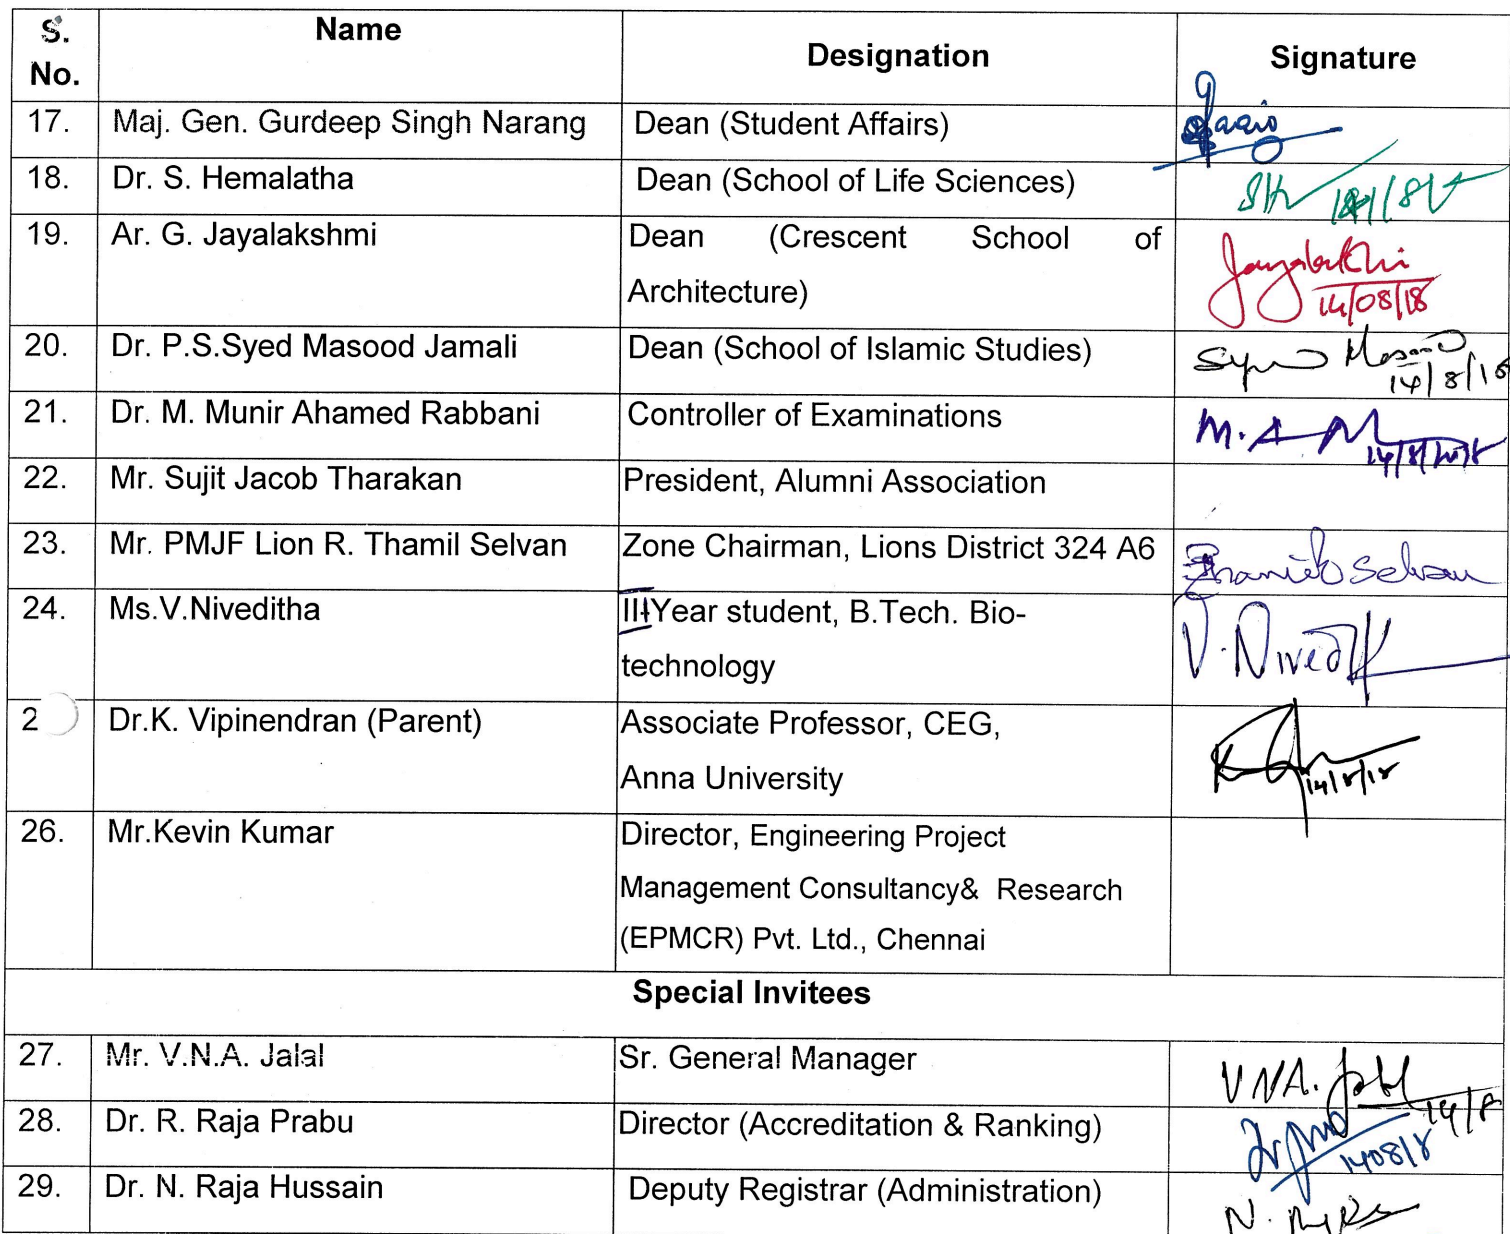 S. No. Name Designation Signature
17. Maj. Gen. Gurdeep Singh Narang Dean (Student Affairs)
18. Dr. S. Hemalatha Dean (School of Life Sciences)
19. Ar. G. Jayalakshmi Dean (Crescent School of
Architecture) Jayalakshmi
14/08/18
20. Dr. P.S.Syed Masood Jamali Dean (School of Islamic Studies) Syed Masood
14/8/18
21. Dr. M. Munir Ahamed Rabbani Controller of Examinations M.A.M
14/8/2018
22. Mr. Sujit Jacob Tharakan President, Alumni Association
23. Mr. PMJF Lion R. Thamil Selvan Zone Chairman, Lions District 324 A6 Selvan
24. Ms.V.Niveditha III Year student, B.Tech. Bio-
technology V. Nivedi
2 Dr.K. Vipinendran (Parent) Associate Professor, CEG,
Anna University 14/8/18
26. Mr.Kevin Kumar Director, Engineering Project
Management Consultancy& Research
(EPMCR) Pvt. Ltd., Chennai
Special Invitees
27. Mr. V.N.A. Jalal Sr. General Manager VNA. Jalal
14/8
28. Dr. R. Raja Prabu Director (Accreditation & Ranking)
1408/18
29. Dr. N. Raja Hussain Deputy Registrar (Administration) N.